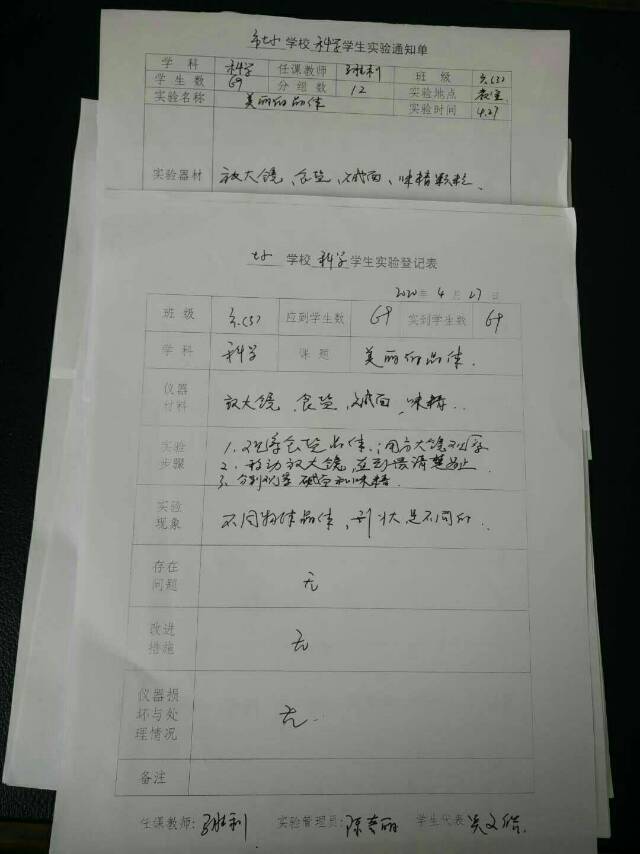 市七小学校科学学生实验通知单
学科 科学 任课教师 胜利 班级 六(3)
学生数 69 分组数 12 实验地点 教室
实验名称 美丽的晶体 实验时间 4.27
实验器材 放大镜、食盐、碱面、味精颗粒.
七小 学校科学学生实验登记表
2020年4月27日
班级 六(3) 应到学生数 69 实到学生数 69
学科 科学 课题 美丽的晶体.
仪器材料 放大镜、食盐、碱面、味精..
实验步骤 1.观察食盐晶体.;用放大镜观察
2.移动放大镜,直到最清楚为止
3、分别观察碱面和味精.
实验现象 不同物体晶体,形状是不同的.
存在问题 无
改进措施 无
仪器损坏与处理情况 无.
备注
任课教师: 胜利 实验管理员: 陈 丽 学生代表 吴文